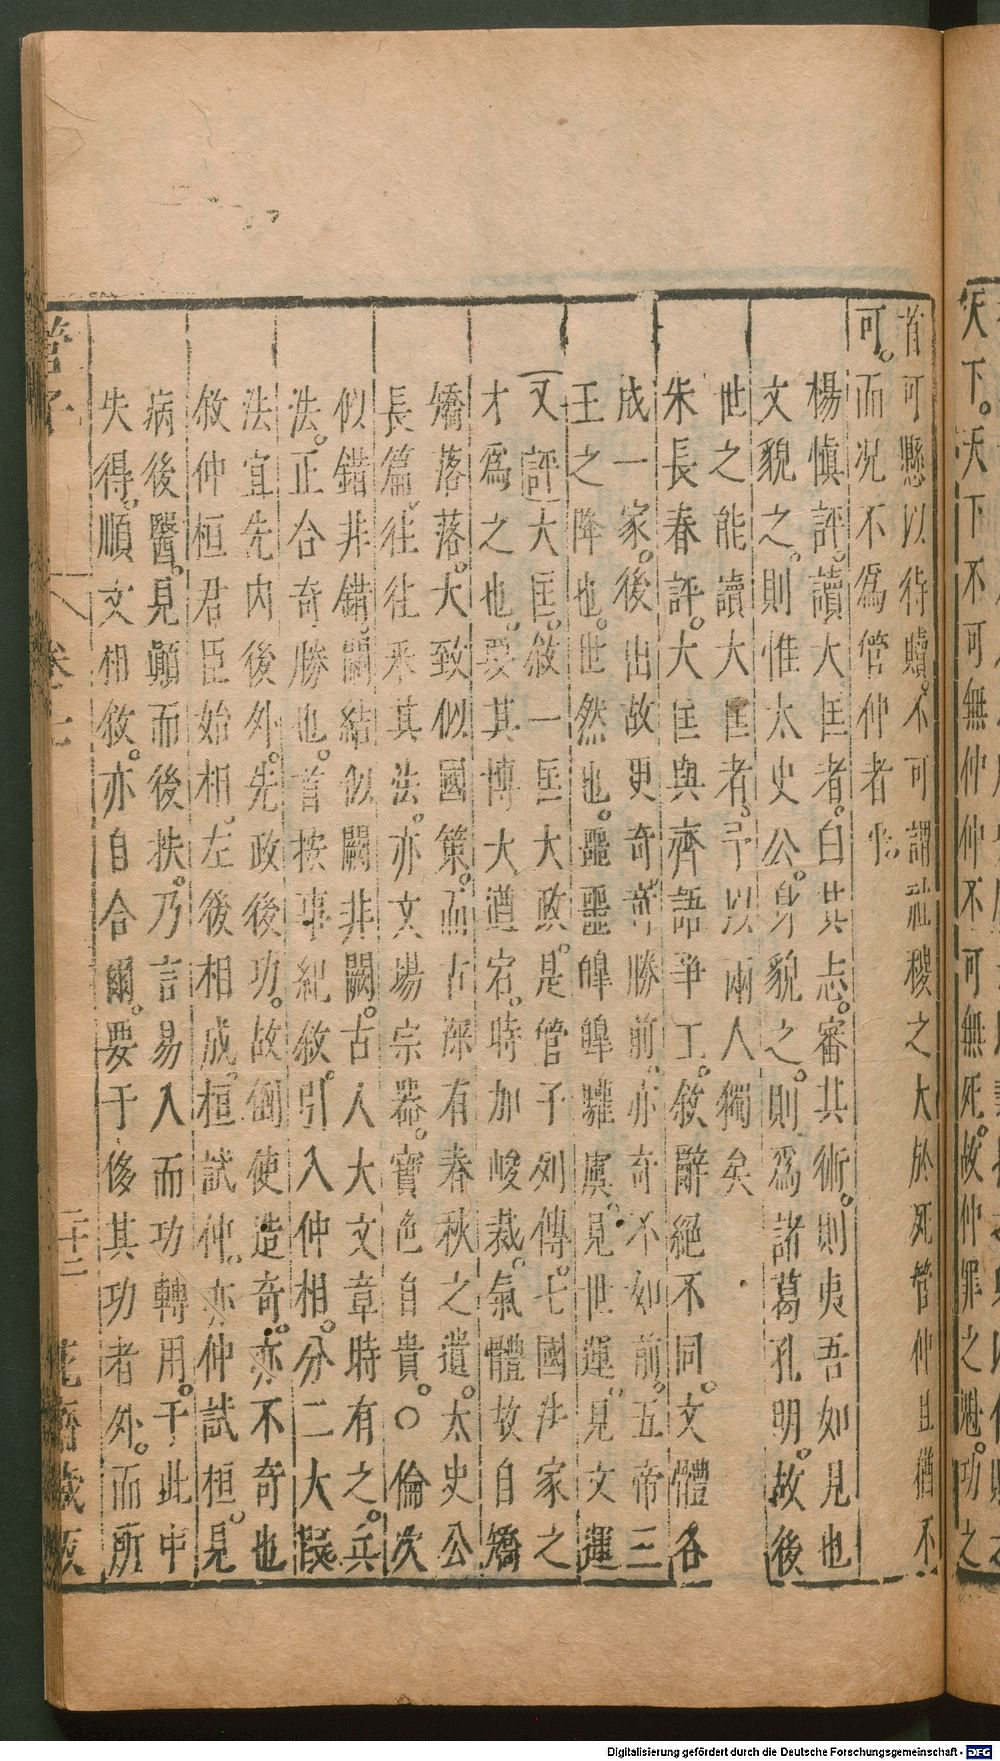 首可懸以待贖。不可謂社稷之大於死管仲且猶不
可。而況不爲管仲者
楊愼評。讀大匡者。白其志。審其術。則夷吾如見也
文貌之。則惟太史公。身貌之。則爲諸葛孔明。故後
世之能讀大匡者。予以兩人獨矣
朱長春評。大匡與齊語爭工。敘辭絕不同。文體各
成一家。後出故更奇奇勝前。亦奇不如前。五帝三
王之降也。世然也。噩噩皥皥驩虞。見世運。見文運
又評大匡。敘一匡大政。是管子列傳。七國法家之
才爲之也。要其博大遒宕。時加峻裁。氣體故自矯
矯落落。大致似國策。而古深有春秋之遺。太史公
長篇。往往釆其法。亦文場宗器。寶色自貴。○倫次
似錯非錯。關結似闕非闕。古人大文章時有之。兵
法。正合奇勝也。首挨事紀敘。引入仲相。分二大段
法宜先內後外。先政後功。故倒使造奇。亦不奇也
敘仲桓君臣始相。左後相成。桓試仲。亦仲試桓。見
病後醫。見顚而後扶。乃言易入而功轉用。于此中
失得。順文相敘。亦自合爾。要于侈其功者外。而所
管子
卷七
二十二
花齋藏板
天下。天下不可無仲仲不可無死。故仲罪之魁。功之
Digitalisierung gefördert durch die Deutsche Forschungsgemeinschaft - DFG